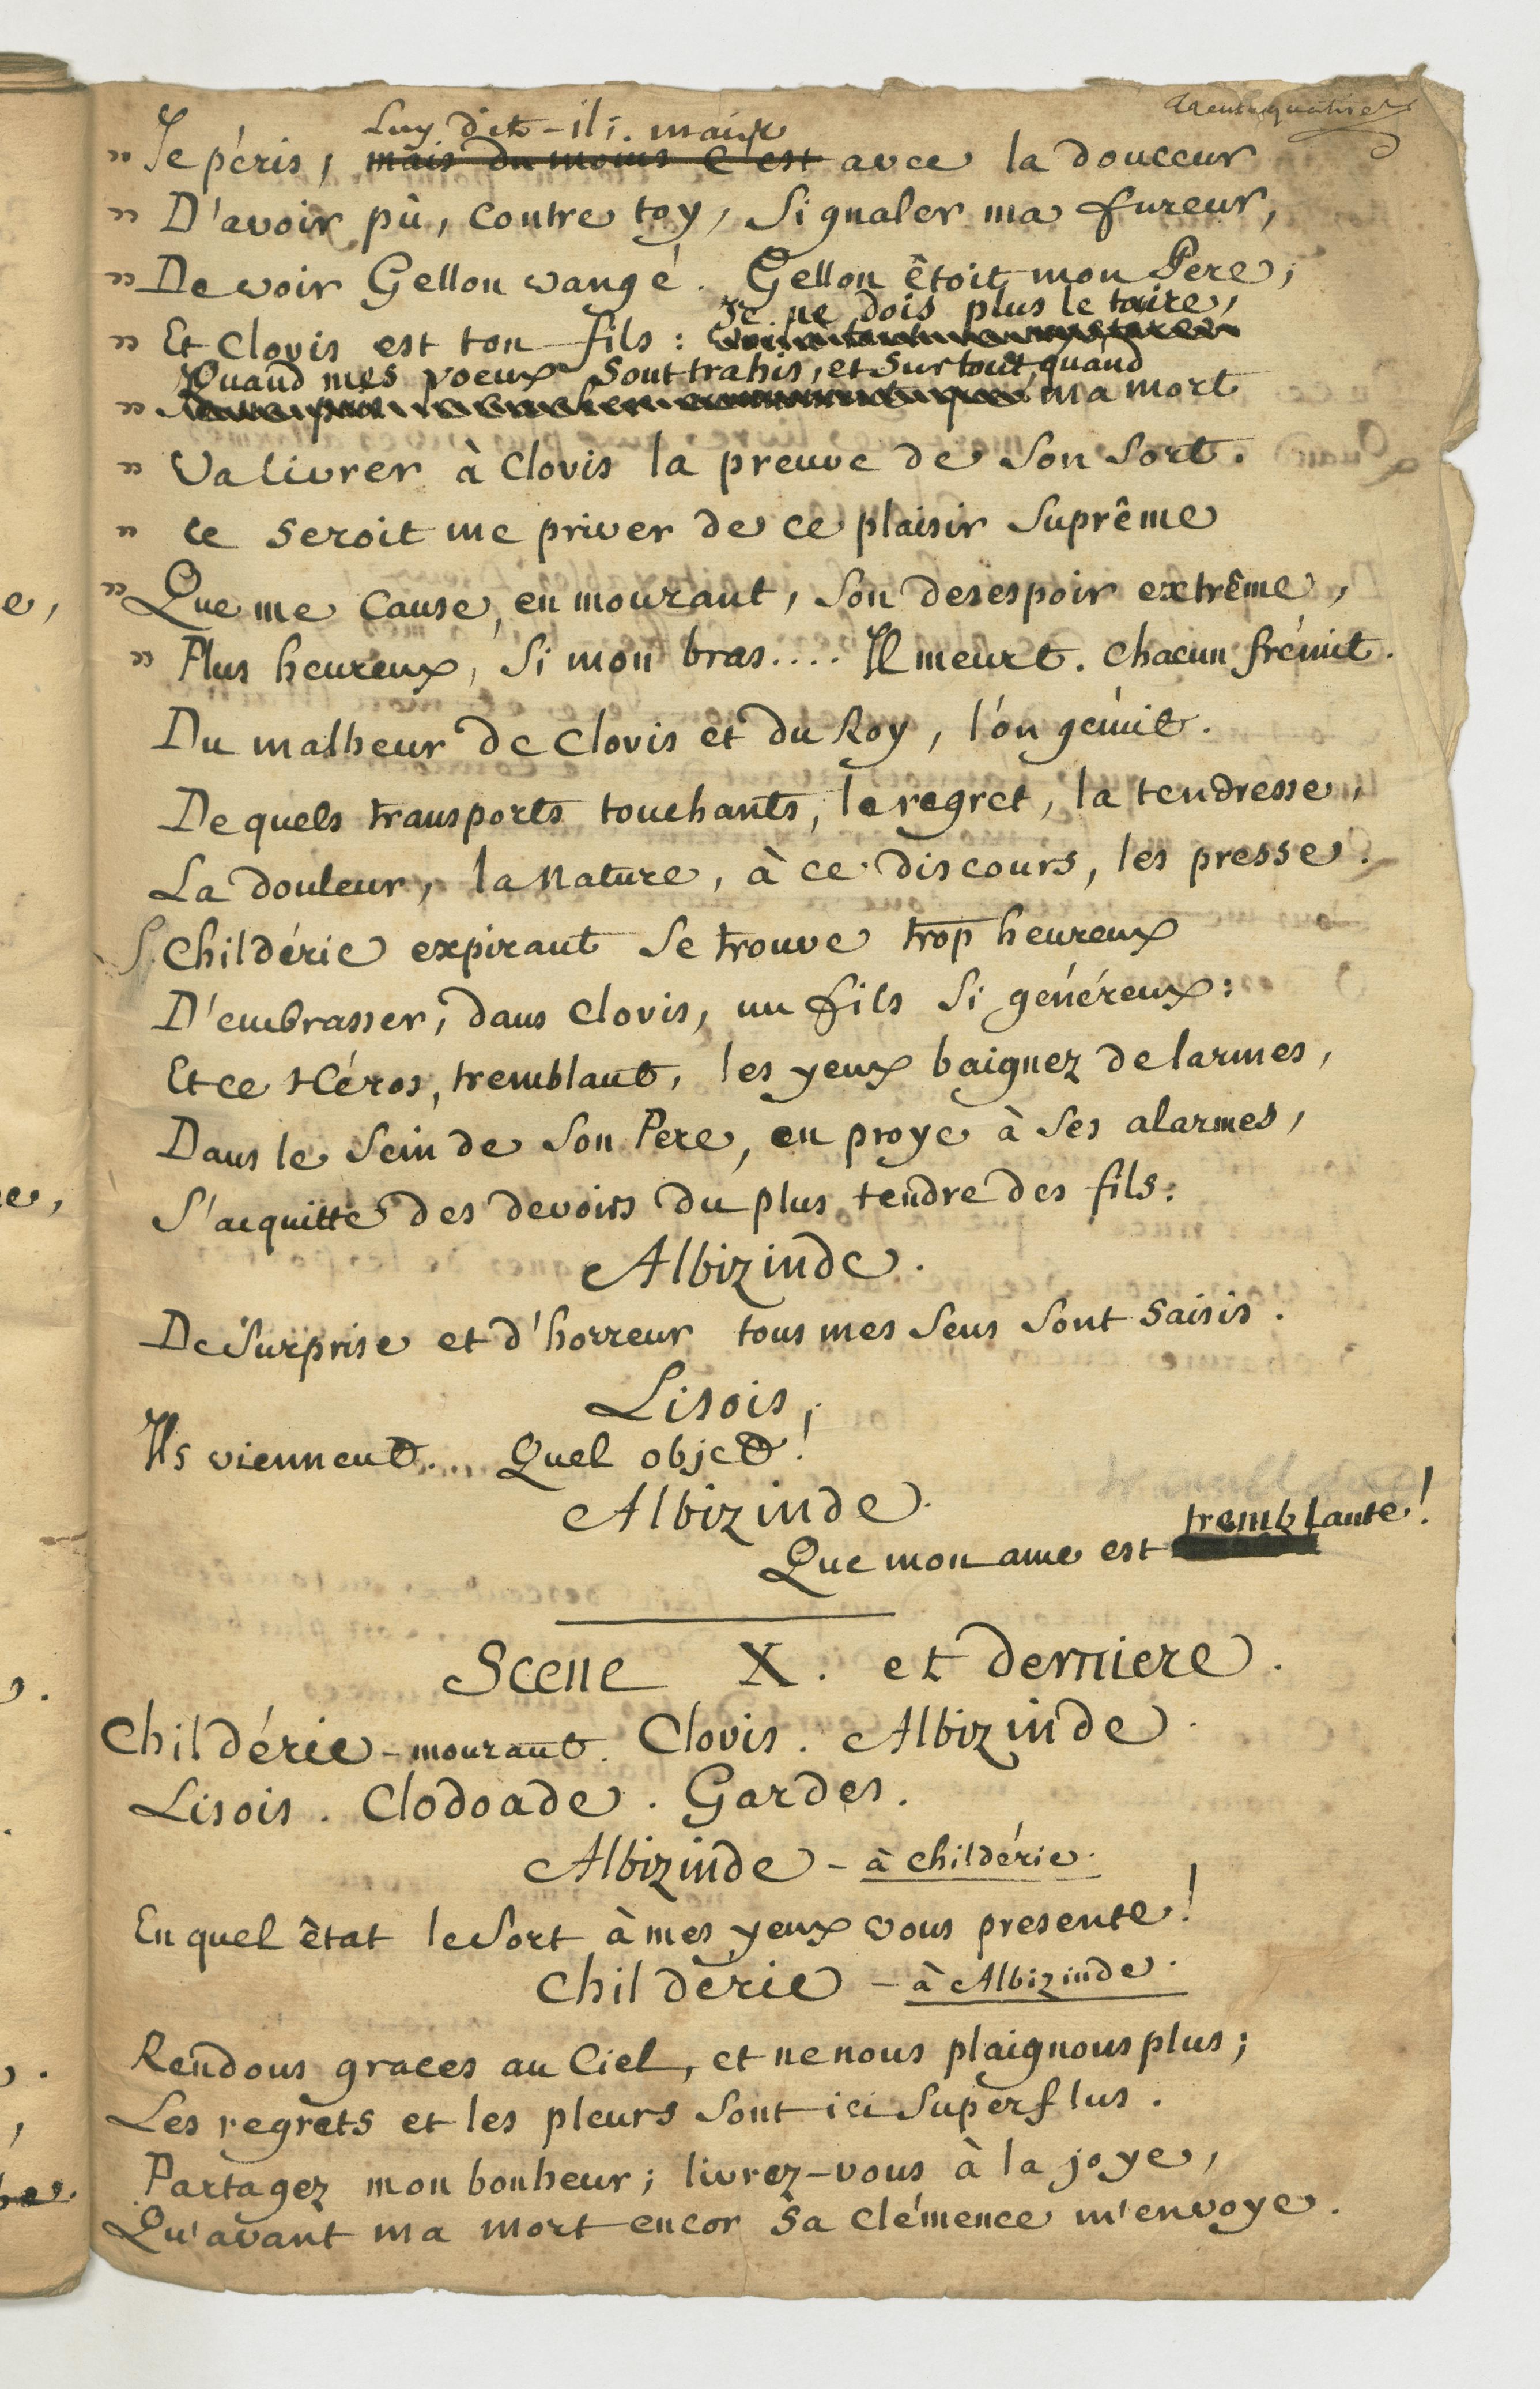 trente quatre
Luy dit-il; mais
" Je péris, mais du moins c'est avec la douceur
" D'avoir pû, contre toy, Signaler ma fureur,
" De voir Gellon vangé. Gellon êtoit mon Pere;
Je ne dois plus le taire,
" Et Clovis est ton fils :
Quand mes voeux sont trahis, et surtout quand
" ma mort
" Va livrer à Clovis la preuve de Son Sort.
" Ce seroit me priver de ce plaisir Suprême
" Que me cause, en mourant, Son desespoir extrême,
" Plus heureux, Si mon bras.... Il meurt. Chacun frémit.
Du malheur de Clovis et du Roy, l'on gémit.
De quels transports touchants, le regret, la tendresse,
La douleur, la nature, à ce discours, les presse.
Childéric expirant Se trouve trop heureux
D'embrasser, dans Clovis, un fils Si généreux:
Et ce Héros, tremblant, les yeux baignez de larmes,
Dans le Sein de Son Pere, en proye à Ses alarmes,
S'acquitte des devoirs du plus tendre des fils.
Albizinde.
De Surprise et d'horreur tous mes Sens Sont saisis.
Lisois,
Ils viennent.... Quel objet!
Albizinde.
tremblante!
Que mon ame est
Scene X. et derniere.
Childéric - mourant. Clovis. Albizinde.
Lisois. Clodoade. Gardes.
Albizinde - à Childéric.
En quel êtat le Sort à mes yeux vous presente!
Childéric - à Albizinde.
Rendons graces au Ciel, et ne nous plaignons plus;
Les regrets et les pleurs Sont ici Superflus.
Partagez mon bonheur; livrez-vous à la joye,
Qu'avant ma mort encor Sa clémence m'envoye.